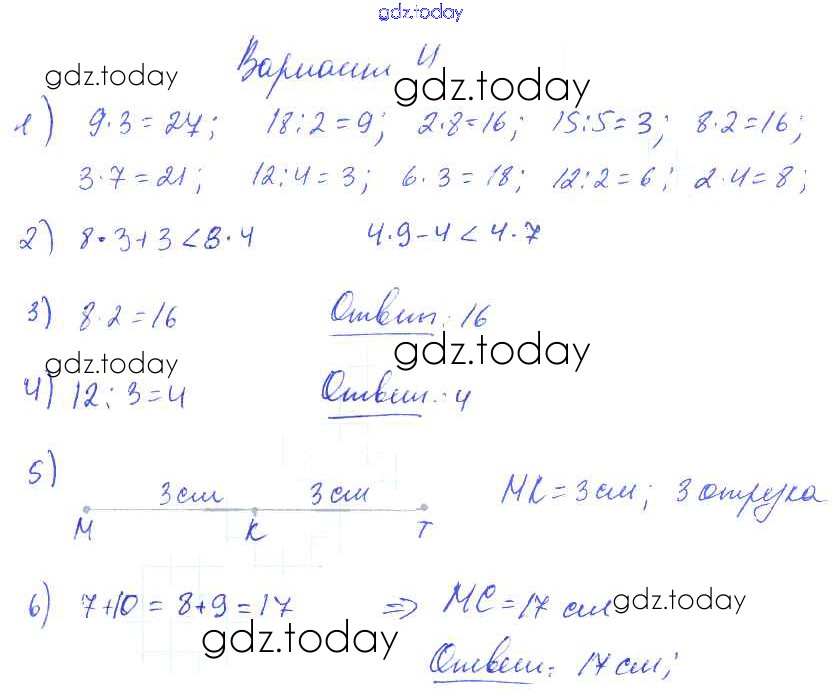 gdz.today
Вариант 4
gdz.today gdz.today
1) 9·3=27; 18:2=9; 2·8=16; 15:5=3; 8·2=16;
3·7=21; 12:4=3; 6·3=18; 12:2=6; 2·4=8;
2) 8·3+3<8·4 4·9-4<4·7
3) 8·2=16 Ответ: 16
gdz.today gdz.today
4) 12:3=4 Ответ: 4
5) 3 см 3 см МК=3 см; 3 отрезка
М К Т
6) 7+10=8+9=17 => МС=17 см gdz.today
gdz.today Ответ: 17 см;